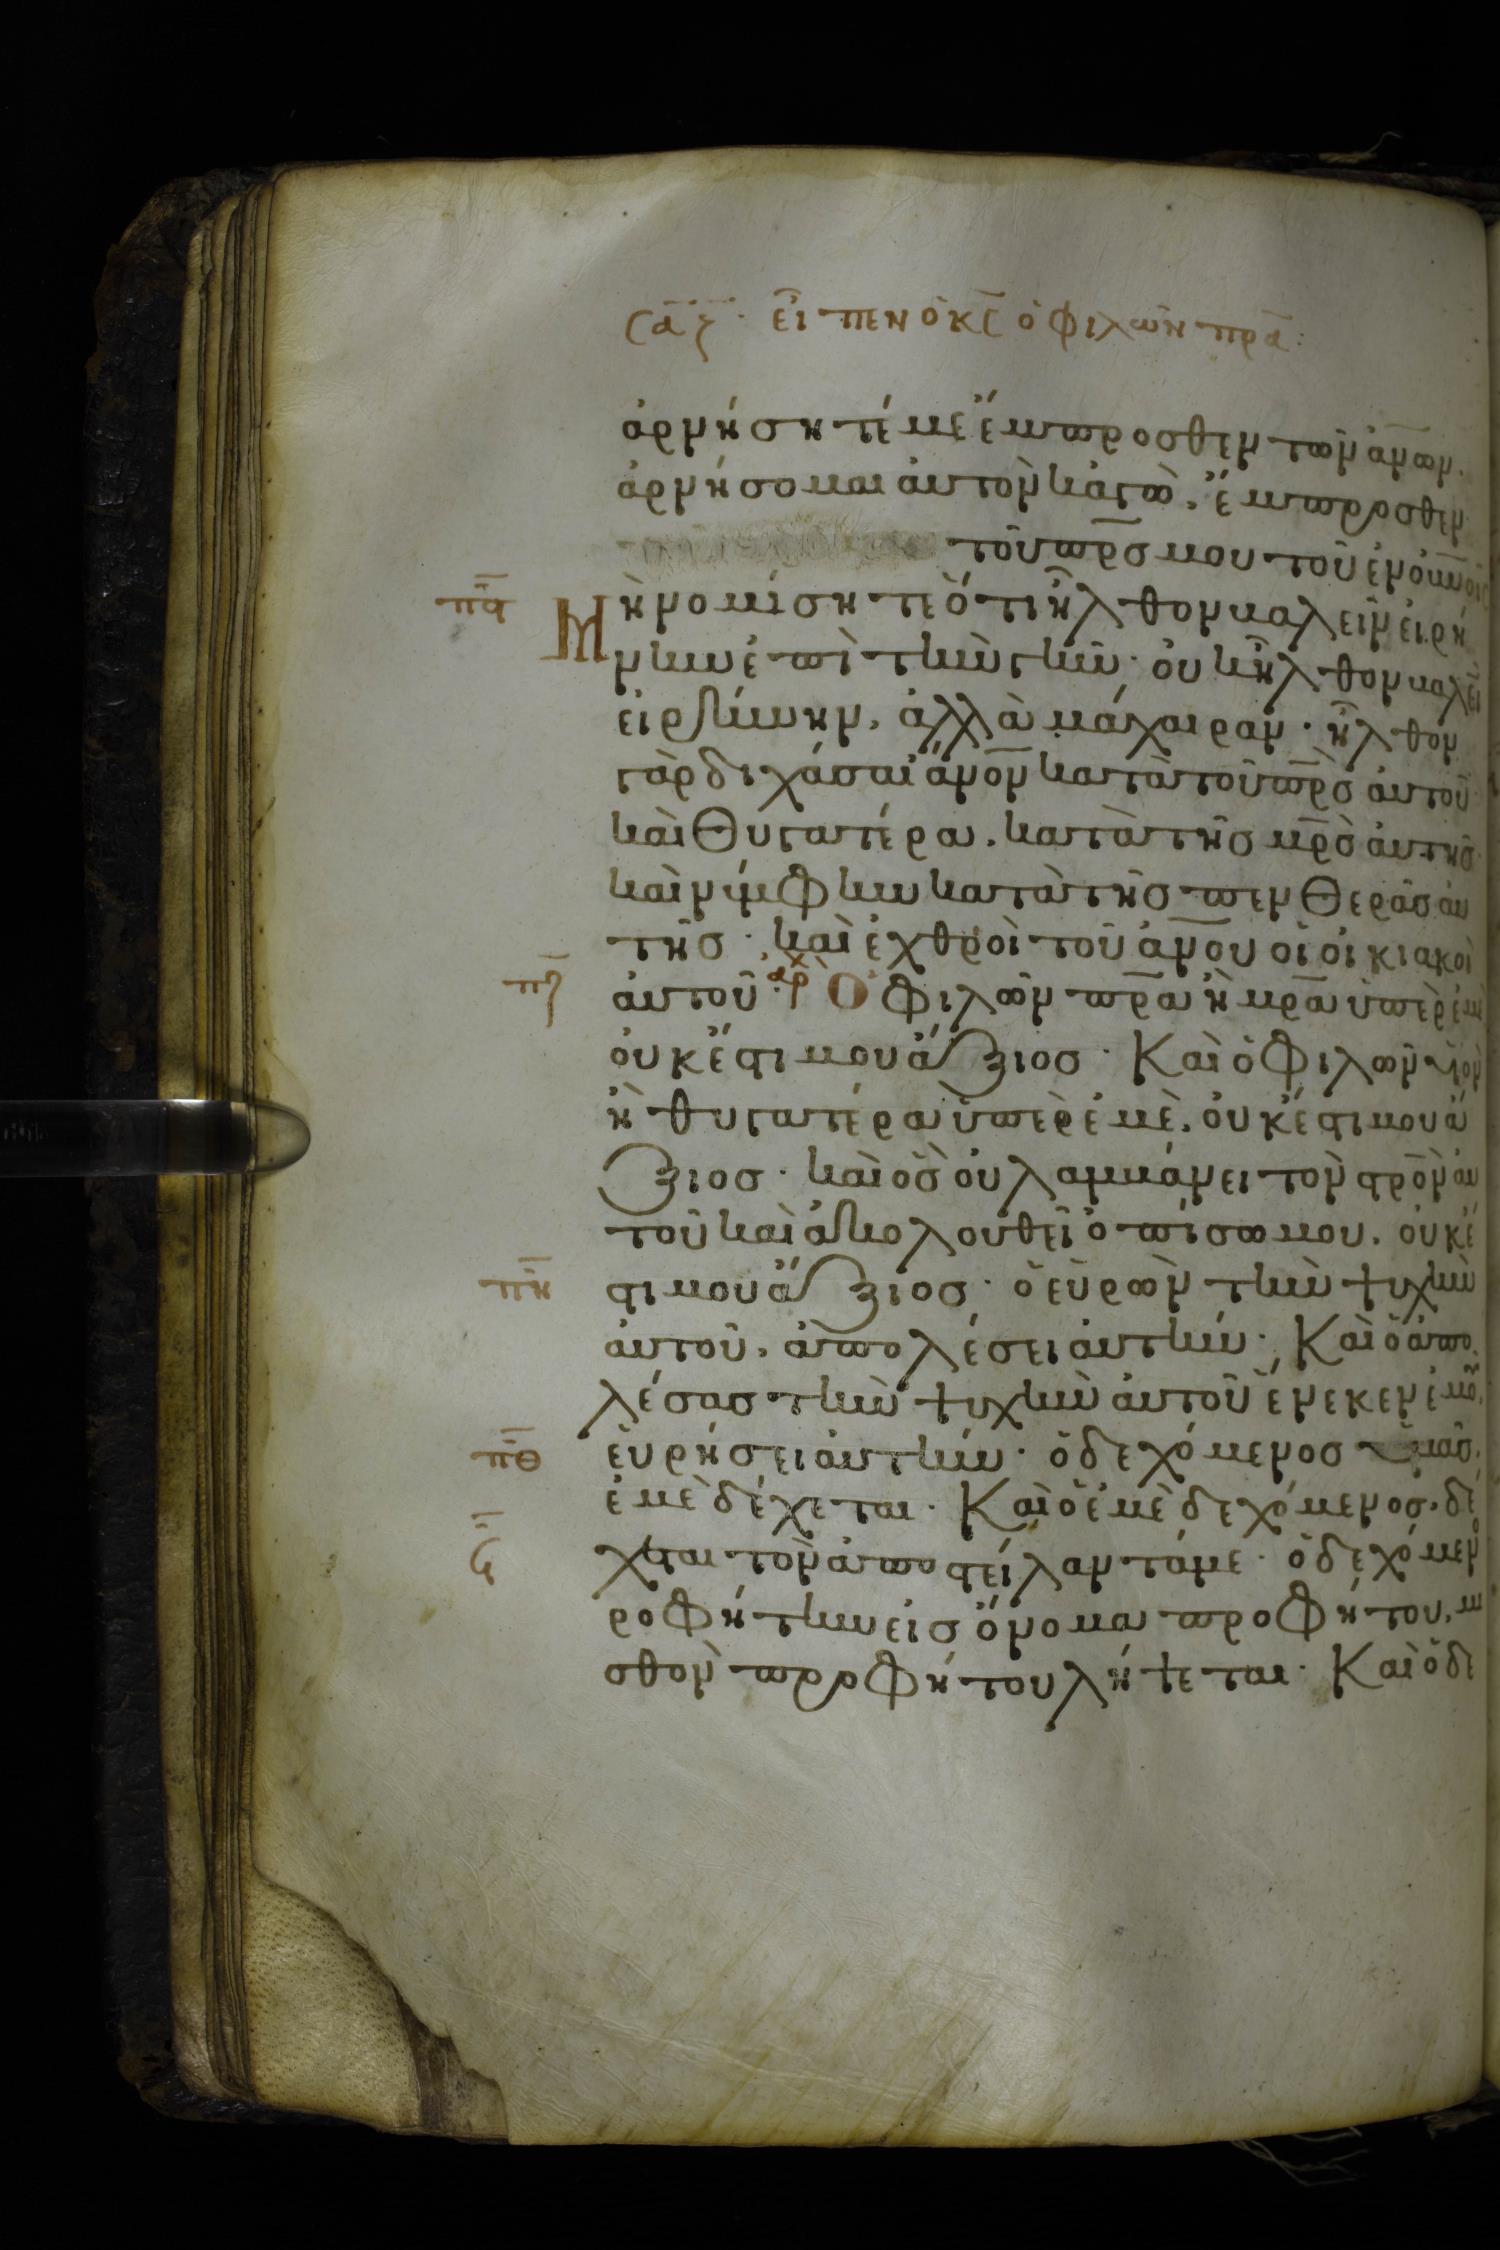 Σα ζ · εἶπεν ὁ κς ὁ φιλῶν πρα :
ἀρνήσητέ με ἔμπροσθεν τῶν ανων.
ἀρνήσομαι αὐτὸν κἀγὼ. ἔμπροσθεν
τοῦ πρσ μου τοῦ ἐν ουνοις
πζ Μὴ νομίσητε ὅτι ἦλθον βαλεῖν εἰρή
νην ἐπὶ τὴν γῆν· οὐκ ἦλθον βαλεῖν
εἰρήνην, ἀλλὰ μάχαιραν · ἦλθον
γὰρ διχάσαι ανον κατὰ τοῦ πρσ αὐτοῦ
καὶ θυγατέρα, κατὰ τῆς μρσ αὐτῆς
καὶ νύμφην κατὰ τῆς πενθερᾶς αὐ
τῆς · καὶ ἐχθροὶ τοῦ ανου οἱ οἰκιακοὶ
πη αὐτοῦ · αρχ Ὁ φιλῶν πρα ἢ μρα ὑπὲρ ἐμὲ
οὐκ ἔστι μου ἄξιος · Καὶ ὁ φιλῶν υἱὸν
ἢ θυγατέρα ὑπὲρ ἐμὲ, οὐκ ἔστι μου ἄ
ξιος · καὶ ὃς οὐ λαμβάνει τὸν στρον αὐ
τοῦ καὶ ἀκολουθεῖ ὀπίσω μου, οὐκ ἔ
πη στι μου ἄξιος · ὁ εὑρὼν τὴν ψυχὴν
αὐτοῦ, ἀπολέσει αὐτήν · Καὶ ὁ ἀπο
λέσας τὴν ψυχὴν αὐτοῦ ἕνεκεν ἐμοῦ,
πθ εὑρήσει αὐτήν · ὁ δεχόμενος ὑμᾶς,
ἐμὲ δέχεται · Καὶ ὁ ἐμὲ δεχόμενος, δέ
ϟ χεται τὸν ἀποστείλαντά με · ὁ δεχόμενος
ροφήτην εἰς ὄνομα προφήτου, μι
σθὸν προφήτου λήψεται · Καὶ ὁ δε